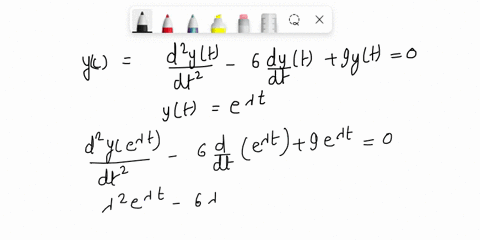 y(c) = d²y(t)/dt² - 6 dy(t)/dt + 9y(t) = 0
y(t) = e^λt
d²y(e^λt)/dt² - 6 d/dt (e^λt) + 9e^λt = 0
λ²e^λt - 6λ